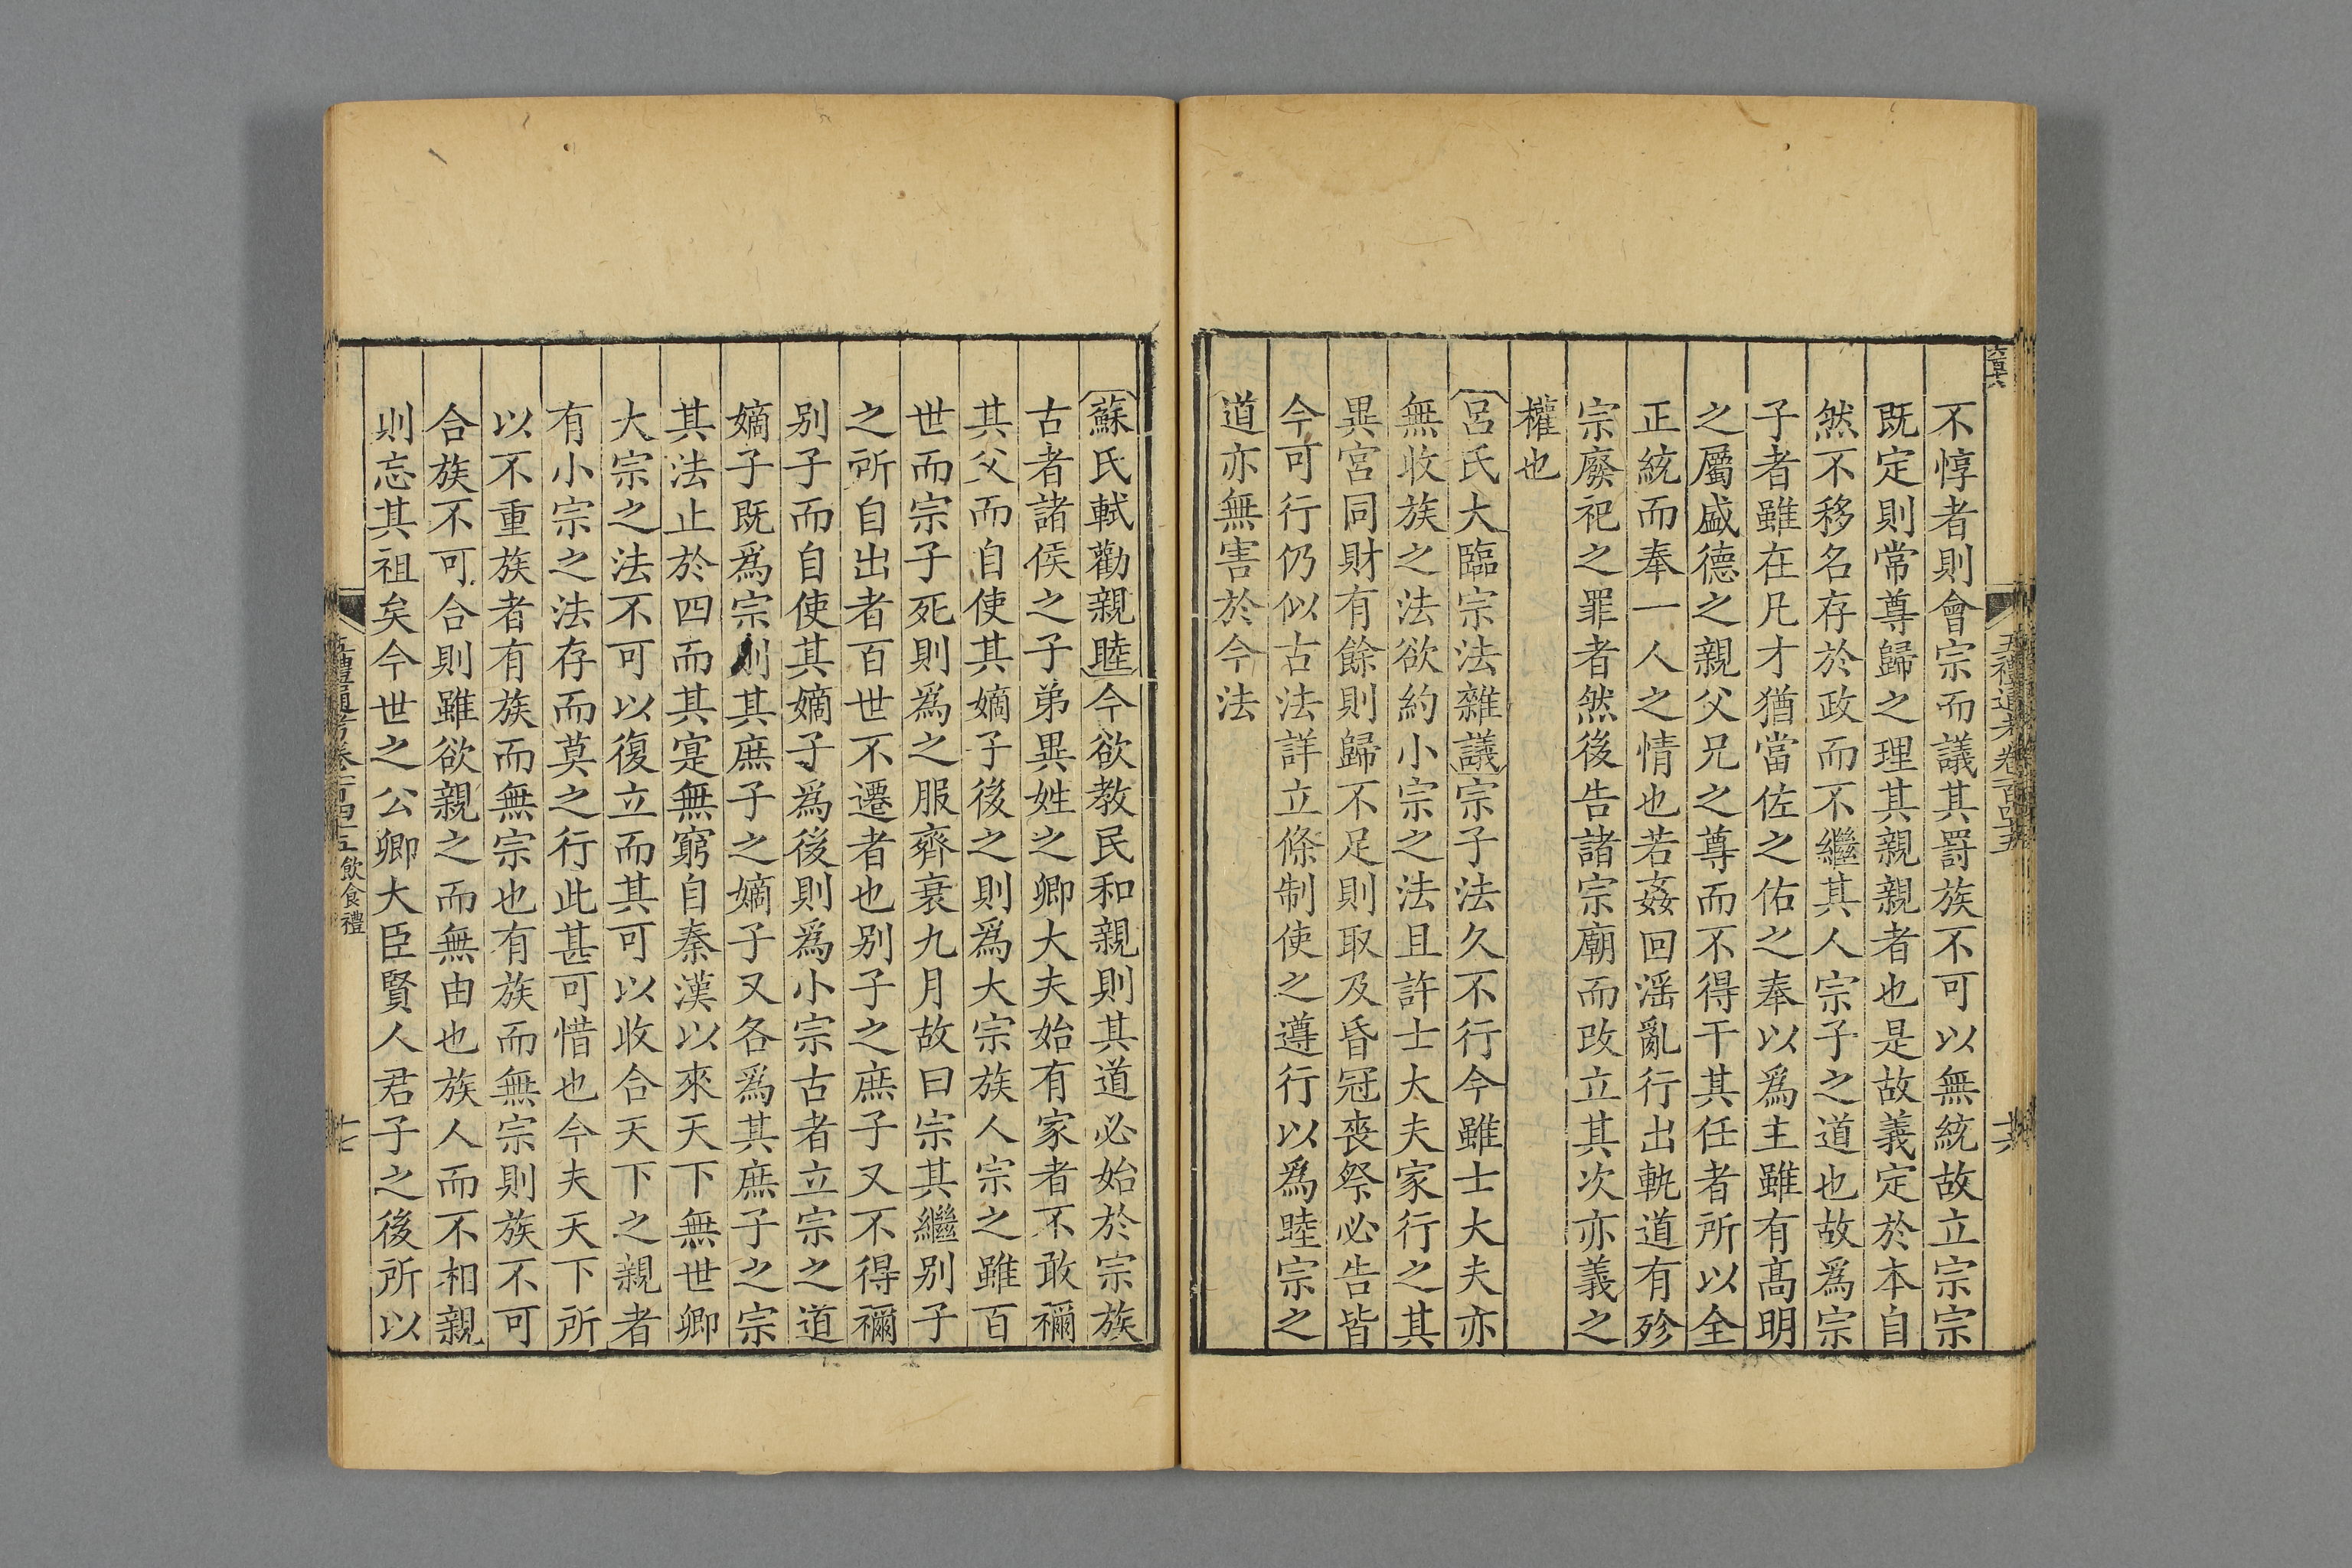 不惇者則會宗而議其罸族不可以無統故立宗宗
既定則常尊歸之理其親親者也是故義定於本自
然不移名存於政而不繼其人宗子之道也故爲宗
子者雖在凡才猶當佐之佑之奉以爲主雖有高明
之屬盛德之親父兄之尊而不得干其任者所以全
正統而奉一人之情也若姦回滛亂行出軌道有殄
宗廢祀之罪者然後告諸宗廟而改立其次亦義之
權也
呂氏大臨宗法雜議宗子法久不行今雖士大夫亦
無收族之法欲約小宗之法且許士大夫家行之其
異宮同財有餘則歸不足則取及昏冠喪祭必告皆
今可行仍似古法詳立條制使之遵行以爲睦宗之
道亦無害於今法
蘇氏軾勸親睦今欲教民和親則其道必始於宗族
古者諸侯之子弟異姓之卿大夫始有家者不敢禰
其父而自使其嫡子後之則爲大宗族人宗之雖百
世而宗子死則爲之服齊衰九月故曰宗其繼別子
之所自出者百世不遷者也別子之庶子又不得禰
別子而自使其嫡子爲後則爲小宗古者立宗之道
嫡子既爲宗則其庶子之嫡子又各爲其庶子之宗
其法止於四而其寔無窮自秦漢以來天下無世卿
大宗之法不可以復立而其可以收合天下之親者
有小宗之法存而莫之行此甚可惜也今夫天下所
以不重族者有族而無宗也有族而無宗則族不可
合族不可合則雖欲親之而無由也族人而不相親
則忘其祖矣今世之公卿大臣賢人君子之後所以
五禮通考卷一百四十五 飲食禮
十七